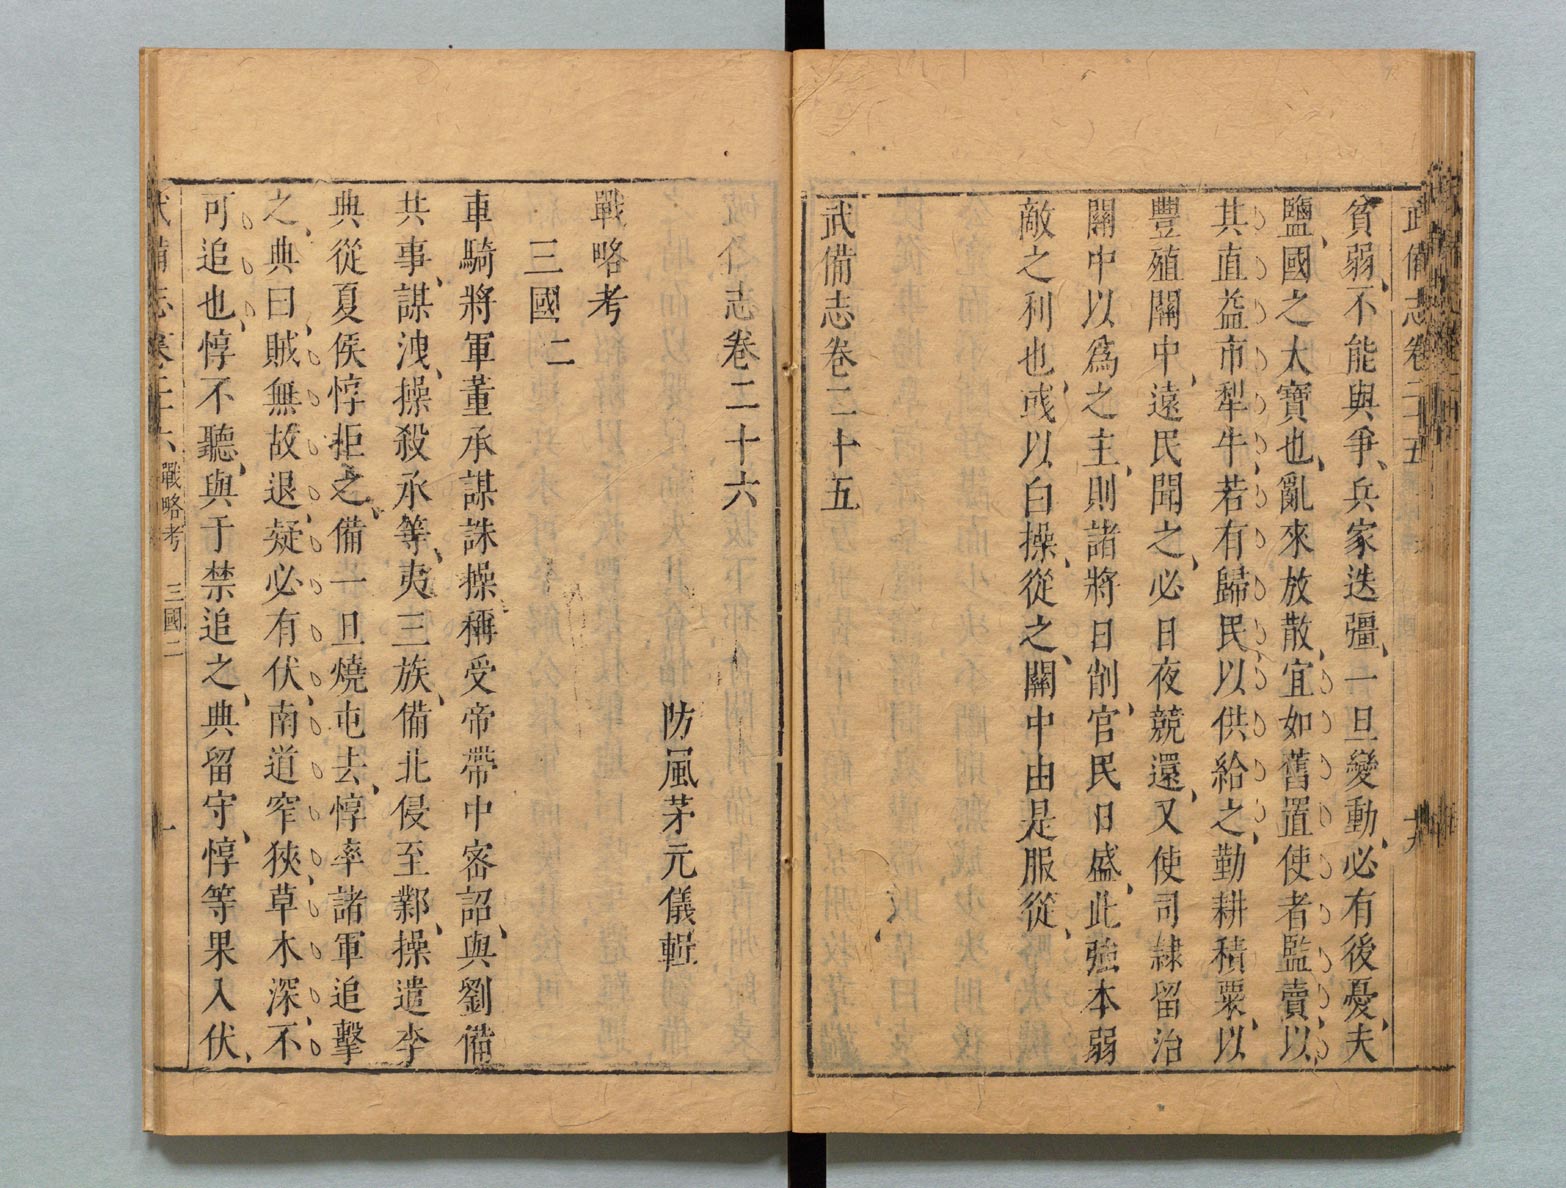 武備志卷二十五
貧弱、不能與爭、兵家迭彊、一旦變動、必有後憂、夫
鹽、國之大寶也、亂來放散、宜如舊置使者監賣、以
其直益市犁牛、若有歸民、以供給之、勤耕積粟、以
豐殖關中、遠民聞之、必日夜競還、又使司隷留治
關中以爲之主、則諸將日削、官民日盛、此強本弱
敵之利也、彧以白操、從之、關中由是服從、
武備志卷二十五
武備志卷二十六
防風茅元儀輯
戰略考
三國二
車騎將軍董承謀誅操稱受帝帶中密詔、與劉備
共事、謀洩、操殺承等、夷三族、備北侵至鄴、操遣李
典從夏侯惇拒之、備一旦燒屯去、惇率諸軍追擊
之、典曰、賊無故退、疑必有伏、南道窄狹、草木深、不
可追也、惇不聽、與于禁追之、典留守、惇等果入伏、
武備志卷二十六 戰略考 三國二 一